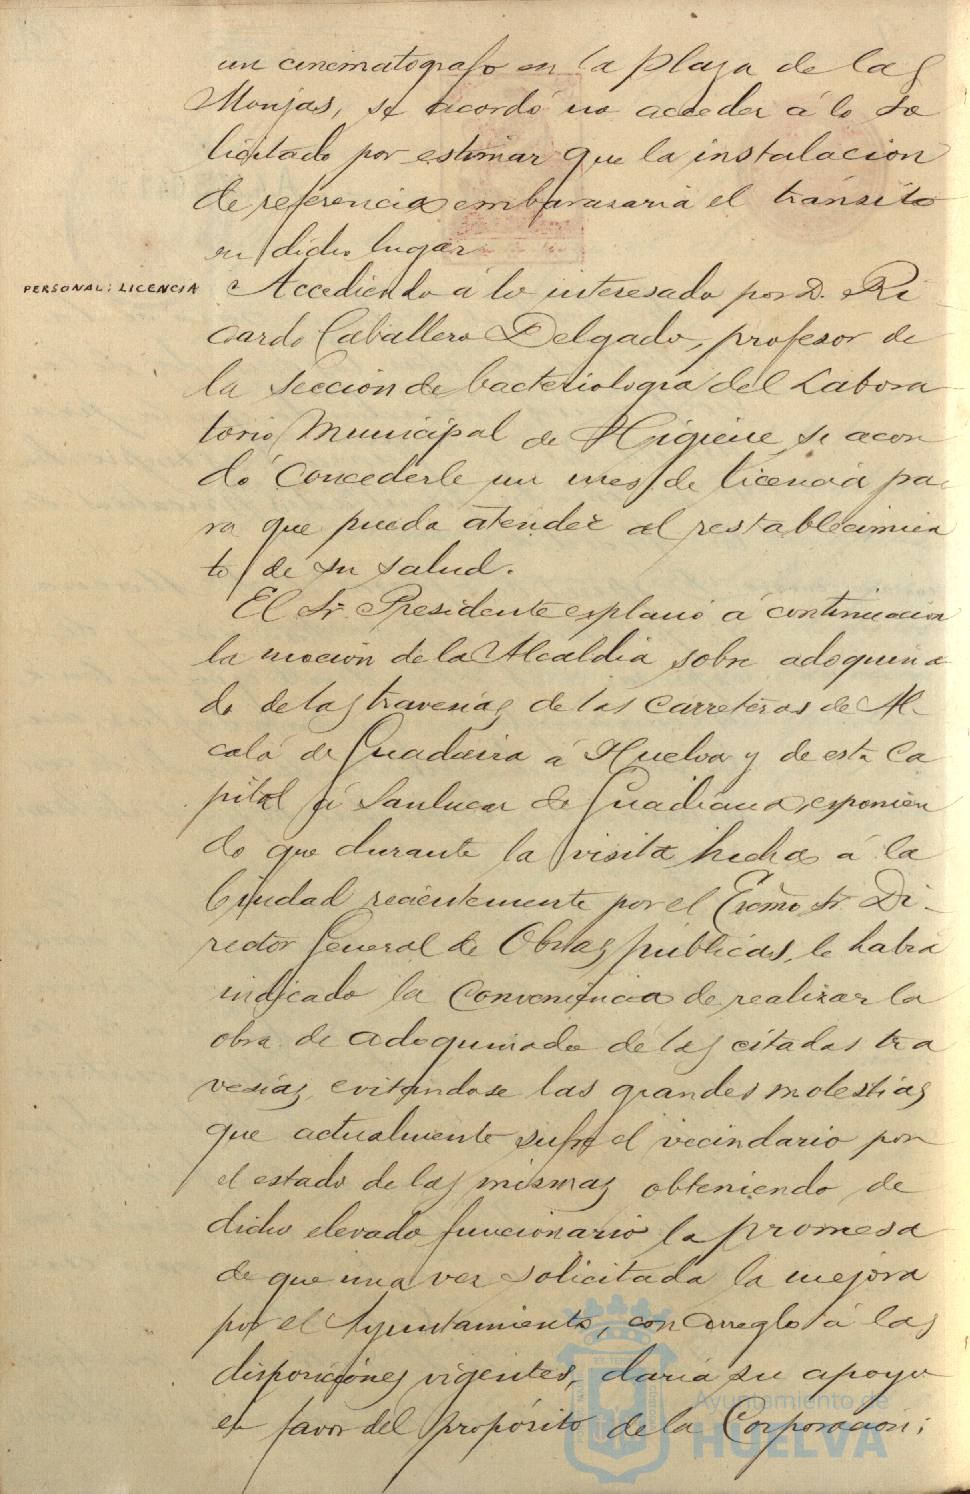 un cinematografo en la plaza de las
Monjas, se acordó no acceder á lo so
licitado por estimar que la instalacion
de referencia embarasaria el tránsito
en dicho lugar
PERSONAL: LICENCIA
Accediendo á lo interesado por D. Ri
cardo Caballero Delgado, profesor de
la sección de bacteriologia del Labora
torio Municipal de Higiene se acor
dó concederle un mes de licencia pa-
ra que pueda atender al restablecimien
to de su salud.
El Sr. Presidente explanó á continuacion
la mocion de la Alcaldia sobre adoquina
do de las travesias de las carreteras de Al-
calá de Guadaira á Huelva y de esta Ca
pital á Sanlucar de Guadiana, exponien
do que durante la visita hecha á la
Ciudad recientemente por el Excmo Sr. Di-
rector General de Obras públicas, le habia
indicado la conveniencia de realizar la
obra de adoquinado de las citadas tra
vesias, evitandose las grandes molestias
que actualmente sufre el vecindario por
el estado de las mismas obteniendo de
dicho elevado funcionario la promesa
de que una vez solicitada la mejora
por el Ayuntamiento, con arreglo á las
disposiciónes vigentes, daria su apoyo
en favor del propósito de la Corporacion;
Ayuntamiento de
HUELVA